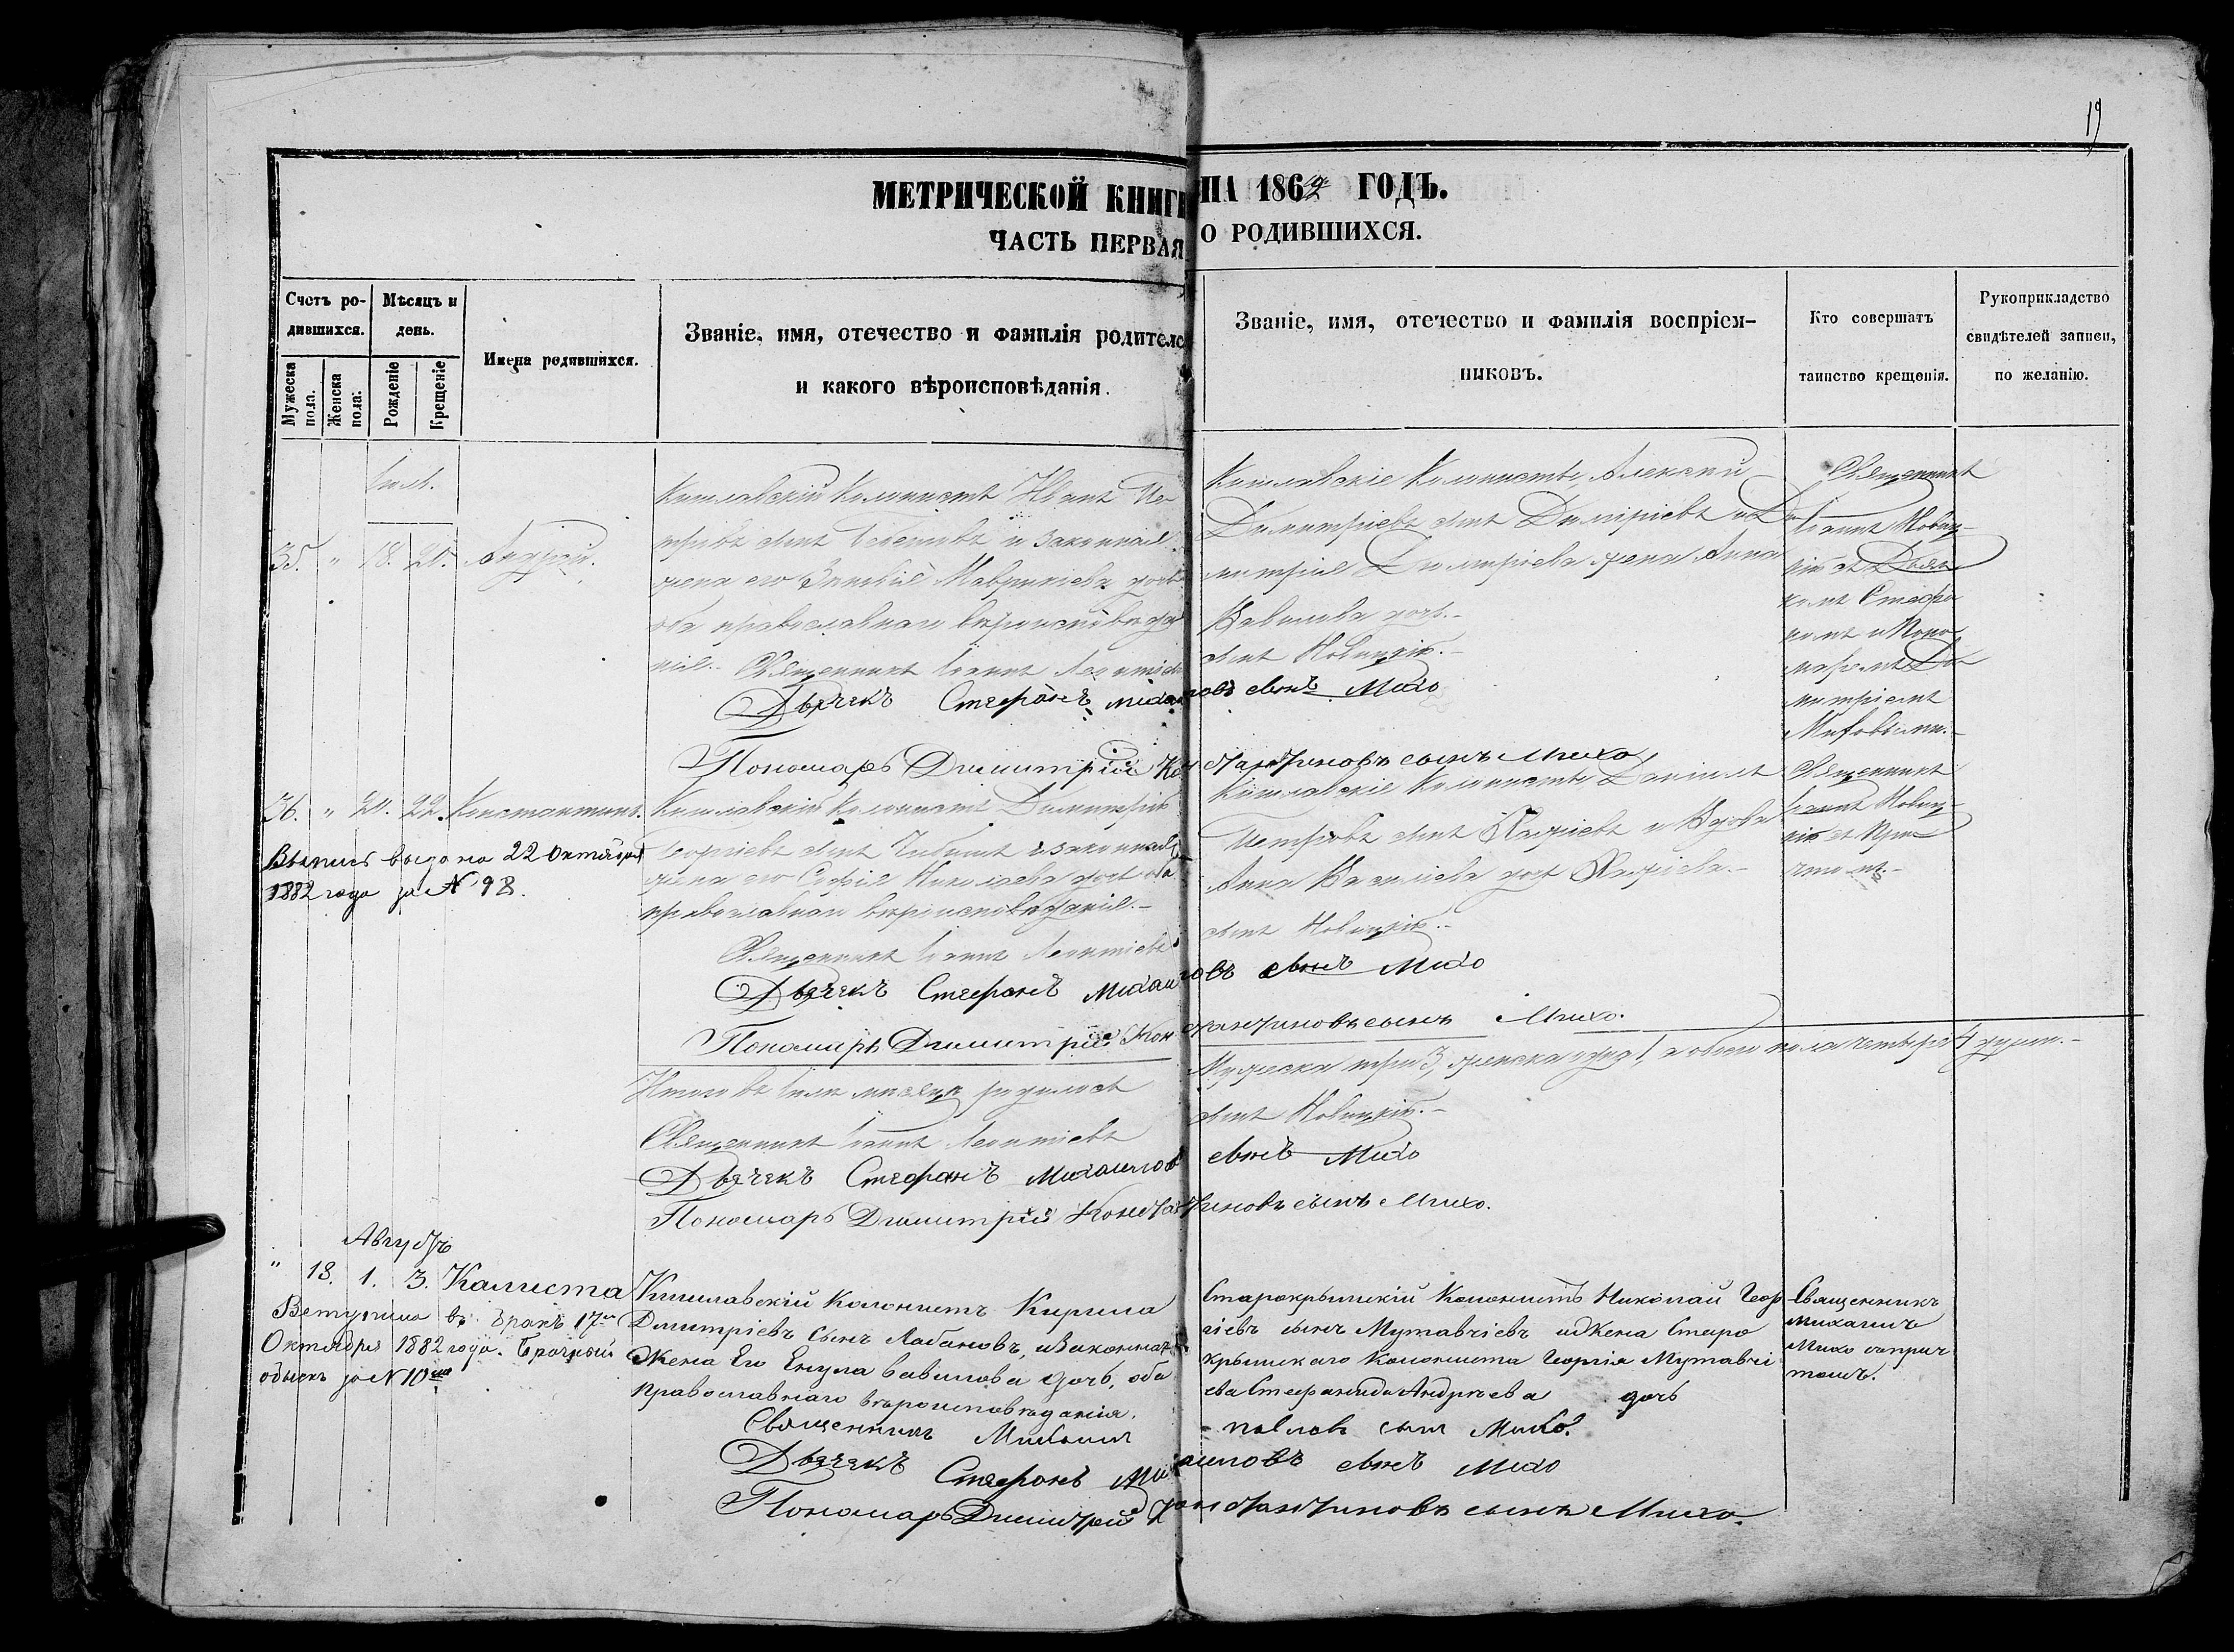 19
МЕТРИЧЕСКОЙ КНИГИ НА 1862 ГОДЪ.
ЧАСТЬ ПЕРВАЯ О РОДИВШИХСЯ.
Счетъ ро-
дившихся.
Мужеска пола.
Женска пола.
Мѣсяцъ и
день.
Рожденіе
Крещеніе
Имена родившихся.
Званіе, имя, отечество и фамилія родителе
и какого вѣроисповѣданія.
Званіе, имя, отечество и фамилія воспріем-
никовъ.
Кто совершатъ
таинство крещенія.
Рукоприкладство
свидѣтелей записи,
по желанію.
Іюль.
35. " 18. 20. Андрей.
Кишлавскій Колонистъ Иванъ Пе-
тровъ сынъ и законная
жена его Маврикіева дочь
оба православнаго вѣроисповѣда
нія.
Священникъ Іоаннъ Леонтіевъ сынъ Новицкій.
Дьячекъ Стефанъ Михаиловъ сынъ Михо
Пономарь Димитрій Константиновъ сынъ Михо
Кишлавскіе Колонисты, Алексѣй
Димитріевъ сынъ Димтріевъ и Ди
митрія Димтріева жена Анна
Вавилова дочь.
Священникъ
Іоаннъ Новиц-
кій съ Дьяч
комъ Стефа
номъ и Поно
маремъ Ди
митріемъ
Миховыми.
36. " 20. 22. Константинъ.
Выпись выдана 22 Октября
1882 года за № 98.
Кишлавскій Колонистъ Димитрій
Георгіевъ сынъ и законная
жена его Софія Николаева дочь оба
православнаго вѣроисповѣданія.
Священникъ Іоаннъ Леонтіевъ сынъ Новицкій.
Дьячекъ Стефанъ Михаиловъ сынъ Михо
Пономарь Димитрій Константиновъ сынъ Михо.
Кишлавскіе Колонисты Даніилъ
Петровъ сынъ и Вдова
Анна Василіева дочь
Священникъ
Іоаннъ Новиц-
кій съ При-
чтомъ.
Итого въ Іюлѣ мѣсяцѣ родилось Мужеска три 3, женска одна 1, а обоего пола четыре 4 души.
Священникъ Іоаннъ Леонтіевъ сынъ Новицкій.
Дьячекъ Стефанъ Михаиловъ сынъ Михо
Пономарь Димитрій Константиновъ сынъ Михо.
Августъ
" 18. 1. 3. Калиста
Вступила въ бракъ 17го
Октября 1882 года. Брачный
обыскъ за № 10мъ
Кишлавскій Колонистъ Кирила
Дмитріевъ Сынъ Лабановъ, и Законная
Жена Его Енула вавилова дочь, оба
православнаго вѣроисповѣданія.
Священникъ Михаилъ павловъ сынъ Михо.
Дьячекъ Стефанъ Михаиловъ сынъ Михо
Пономарь Димитрій Константиновъ сынъ Михо.
Старокрымскій Колонистъ Николай Геор
гіевъ сынъ Мутавчіевъ и Жена Старо
крымскаго Колониста Георгія Мутавчі
ева Стефанида Андреева дочь
Священникъ
Михаилъ
Михо съ прич
томъ.